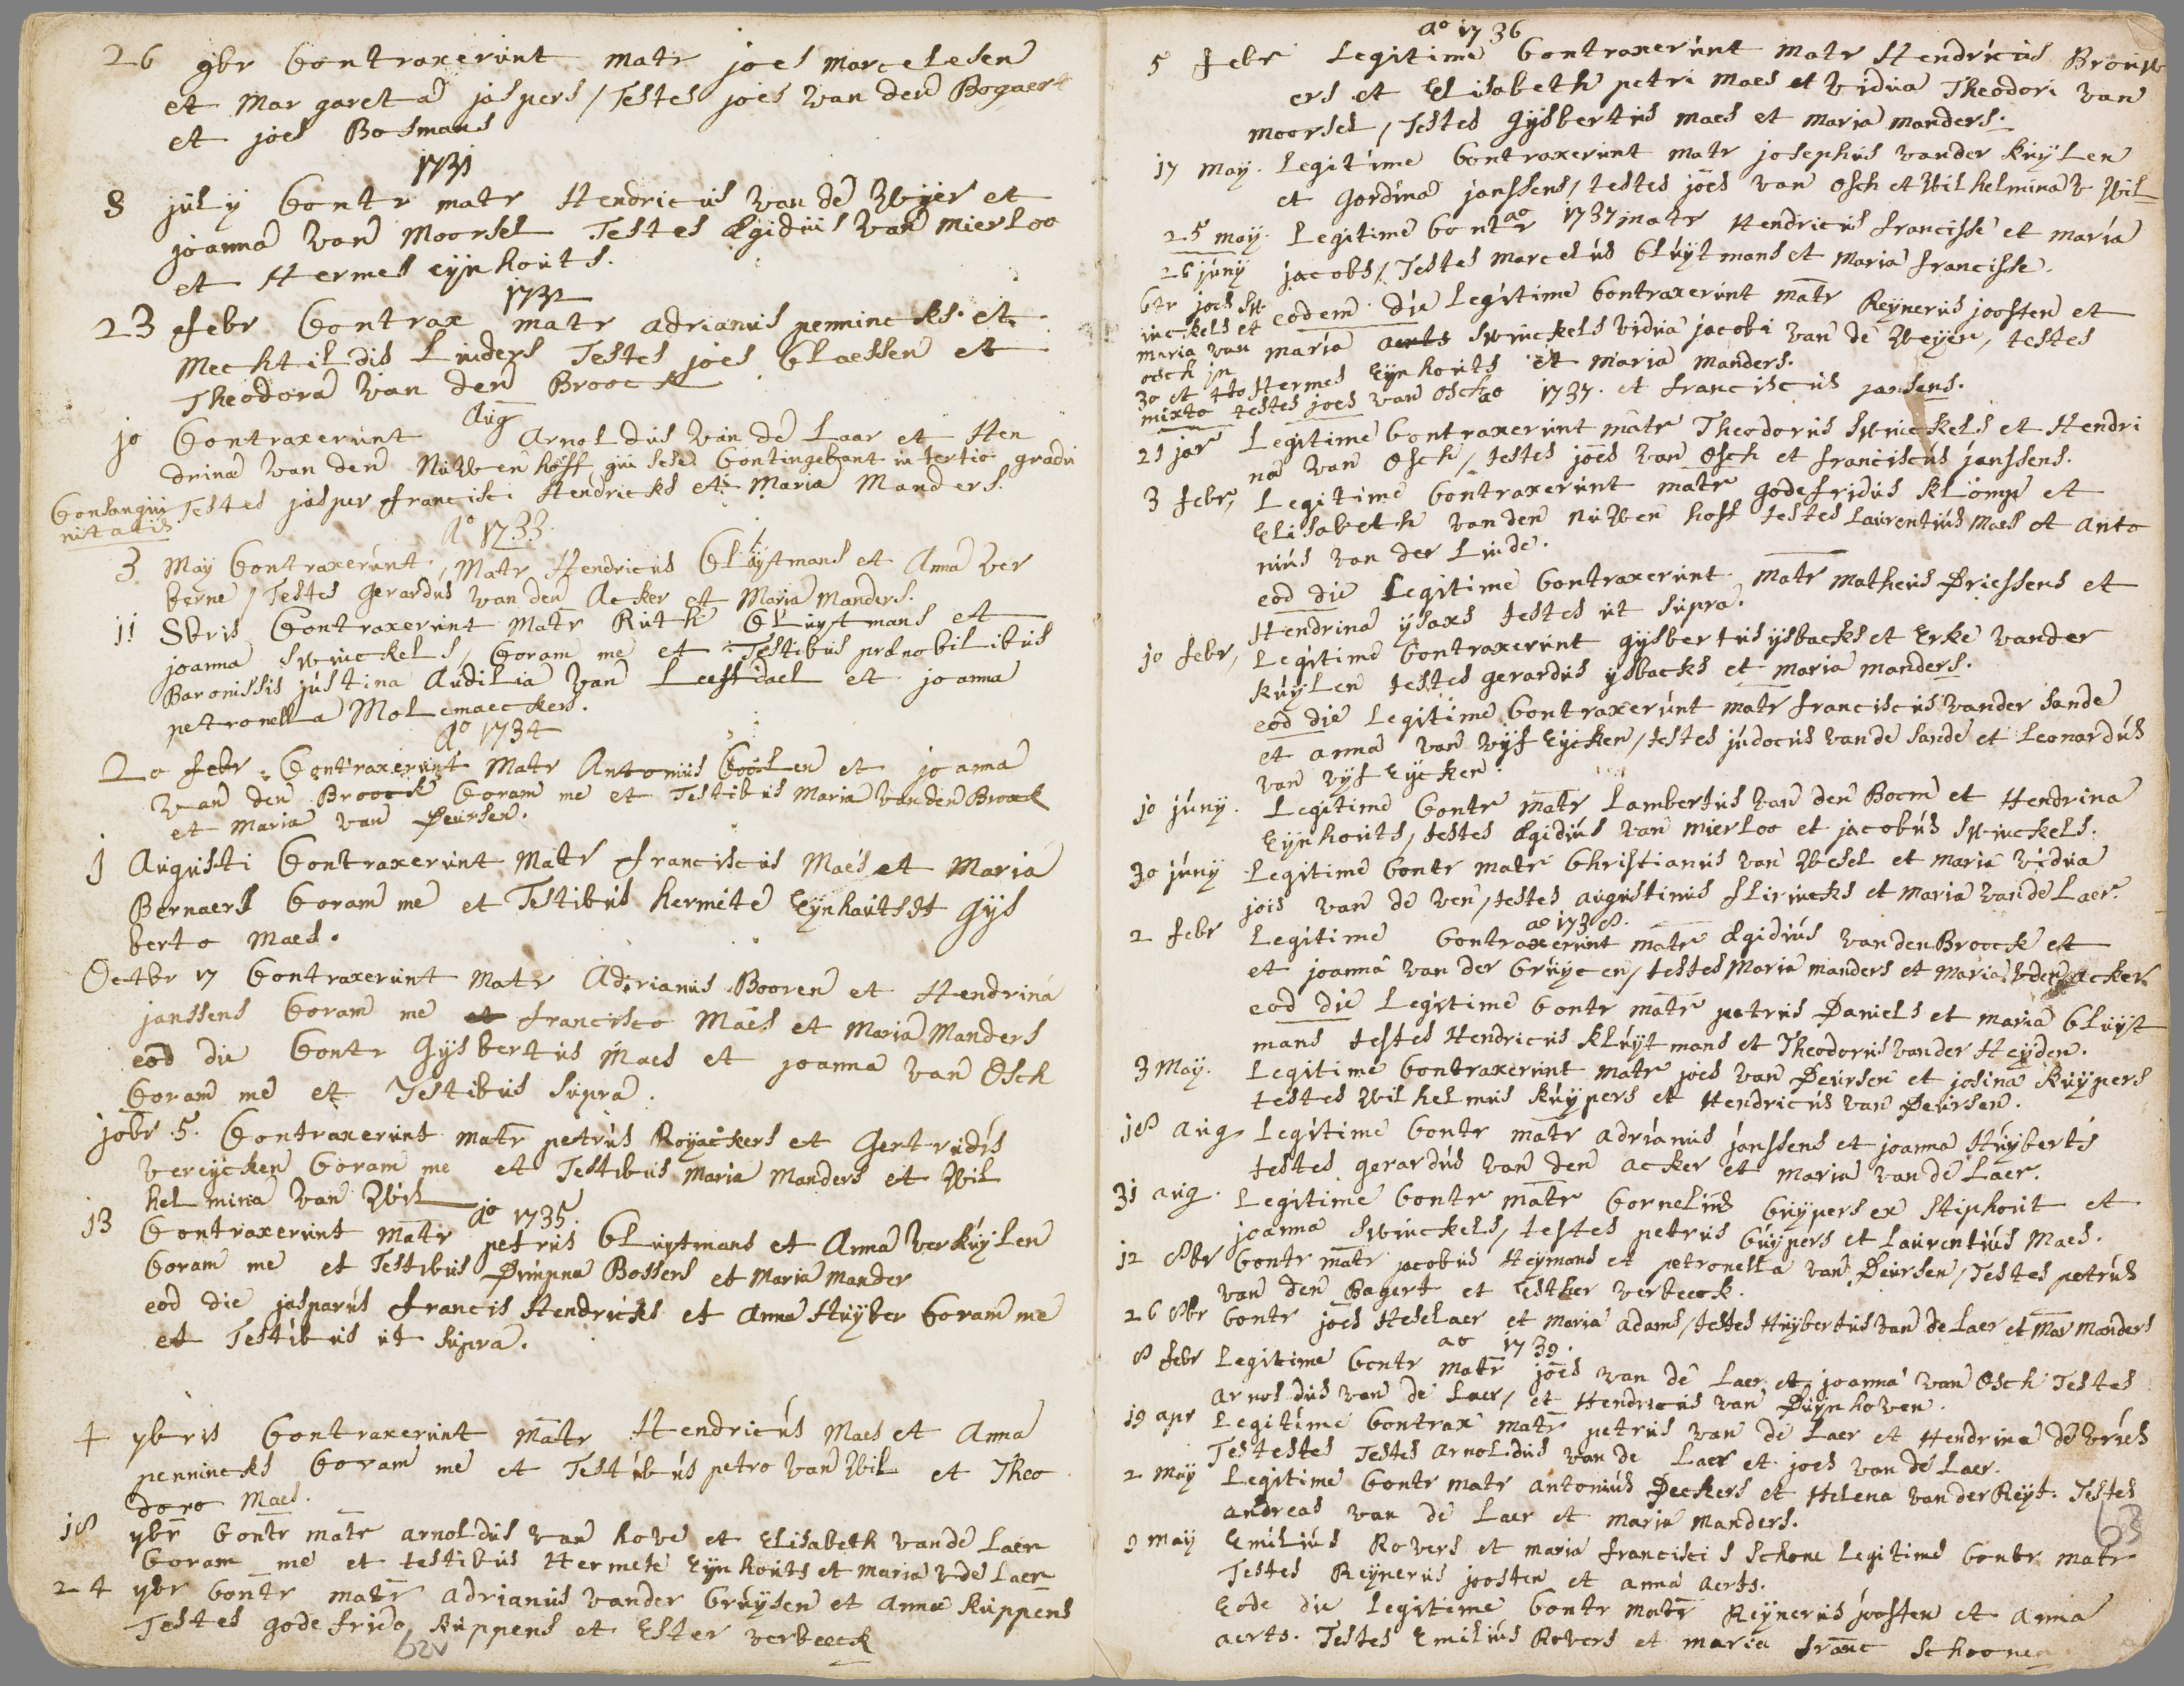 26 9br Contraxerunt matr joes marcelesen
et Margareta jaspers / Testes joes van den Bogaert
et joes Bosmans
1731
8 july Contr matr Hendricus van de Wyer et
joanna van Moorsel Testes Ægidius van Mierloo
et Hermes eynhouts.
1732
23 febr Contrax matr adrianus pennincks et
Mechtildis Linders Testes joes Claessen et
Theodora van den Broock
Aug
10 Contraxerunt Arnoldus van de Laar et Hen
drina van den Nuwenhoff qui sese Contingebant in tertio gradu
Consangui Testes jasper francisci Hendricks et Maria Manders.
nitatis
Ao 1733
3 May Contraxerunt, Matr Hendricus Cluytmans et Anna ver
berne / Testes Gerardus van den Acker et Maria Manders.
11 8bris Contraxerunt Matr Ruth Cluytmans et
joanna Swinckels, Coram me et Testibus prænobilibus
Baronissis justina Audilia van Leefdael et joanna
petronella Molemaeckers.
Ao 1734
20 febr Contraxerunt Matr Antonius Coolen et joanna
van den Broock Coram me et Testibus Maria van den Broock
et Maria van Deursen.
1 Augusti Contraxerunt Matr franciscus Maes et Maria
Bernaers Coram me et Testibus hermete Eynhauts et Gys
berto Maes.
Octbr 17 Contraxerunt Matr Adrianus Booren et Hendrina
janssens Coram me et francisco Maes et Maria Manders
eod die Contr Gysbertus Maes et joanna van Osch
Coram me et Testibus supra.
10br 5. Contraxerunt matr petrus Royackers et Gertrudis
vereycken Coram me et Testibus Maria Manders et Wil
helmina van Wil
Ao 1735.
13 Contraxerunt Matr petrus Cluytmans et Anna verkuylen
Coram me et Testibus Dimpna Bossers et Maria Mander
eod die jasparus francis Hendricks et Anna Huyber Coram me
et Testibus ut supra.
4 9bris Contraxerunt Matr Hendricus Maes et Anna
pennincks Coram me et Testibus petro van Wil et Theo
doro Maes.
18 9br Contr matr arnoldus van hove et Elisabeth van de Laer
Coram me et testibus Hermete Eynhouts et Maria v de Laer
24 9br Contr matr adrianus vander Cruysen et Anna kuppens
Testes godefrido kuppens et Ester verbeeck
62v
ao 1736
5 febr Legitime Contraxerunt Matr Hendricus Brouw
ers et Elisabeth petri Maes et vidua Theodori van
moorsel, Testes Gysbertus maes et maria manders.
17 may. Legitime Contraxerunt matr josephus vander kuylen
et Gordina janssens, testes joes van Osch et Wilhelmina v Wil
ao 1737
25 may. Legitime Contr matr Hendricus francisse et maria
26 juny jacobs, Testes marcelus Cluytmans et Maria francisse.
Ctr joes Sw eodem die Legitime Contraxerunt matr Reynerus joosten et
inckels et maria aerts Swinckels vidua jacobi van de Weyer, testes
maria van
osch in Hermes Eynhouts et maria manders.
30 et 4to
mixto testes joes van Osch et franciscus jansens.
ao 1737.
21 jar Legitime Contraxerunt matr Theodorus Swinckels et Hendri
na van Osch, testes joes van Osch et franciscus janssens.
3 febr, Legitime Contraxerunt matr godefridus klomp et
Elisabeth van den nuwen hoff testes Laurentius Maes et anto
nius van der Linde.
eod die Legitime Contraxerunt matr matheus Driessens et
Hendrina ysaxs testes ut supra.
10 febr, Legitime Contraxerunt gysbertus ysbacks et Erke vander
kuylen testes gerardus ysbacks et maria manders.
eod die Legitime Contraxerunt matr franciscus vander sande
et anna van vyf Eycken, testes judocus van de sande et Leonardus
van vyf Eycken.
10 juny. Legitime Contr matr Lambertus van den Boem et Hendrina
Eynhouts, testes Ægidius van mierloo et jacobus Swinckels.
30 juny Legitime Contr matr Christianus van Wesel et maria vidua
jois van de ven, testes augustinus flirincks et maria van de Laer.
ao 1738.
2 febr Legitime Contraxerunt matr Ægidius van den Broock et
et joanna van der Cruycen, testes Maria manders et maria v den acker
eod die Legitime Contr matr petrus Daniels et maria Cluyt
mans testes Hendricus kluytmans et Theodorus vander Heyden.
3 May. Legitime Contraxerunt matr joes van Deursen et josina kuypers
testes Wilhelmus kuypers et Hendricus van Deursen.
18 aug Legitime Contr matr adrianus janssens et joanna Huyberts
testes gerardus van den acker et maria van de Laer.
31 aug. Legitime Contr matr Cornelius Cuypers ex Stiphout et
joanna Swinckels, testes petrus Cuypers et Laurentius Maes.
12 8br Contr matr jacobus Heymans et petronella van Deursen, Testes petrus
van den Bagert et Esther verbeeck.
26 8br Contr joes Heselaer et maria adams, testes Huybertus van de Laer et Mar Manders
ao 1739.
8 febr Legitime Contr matr joes van de Laer et joanna van Osch Testes
arnoldus van de Laer, et Hendricus van Duynhoven.
19 apr Legitime Contrax matr petrus van de Laer et Hendrina de vries
Testestes Testes arnoldus van de Laer et joes van de Laer.
2 may Legitime Contr matr antonius Deckers et Helena van der Reyt. Testes
andreas van de Laer et maria manders.
9 may Emilius Rovers et maria francisci s schone Legitime Contr matr
Testes Reynerus joosten et anna aerts.
Eode die Legitime Contr matr Reynerus joosten et anna
aerts. Testes Emilius Rovers et maria franc schoonen
63